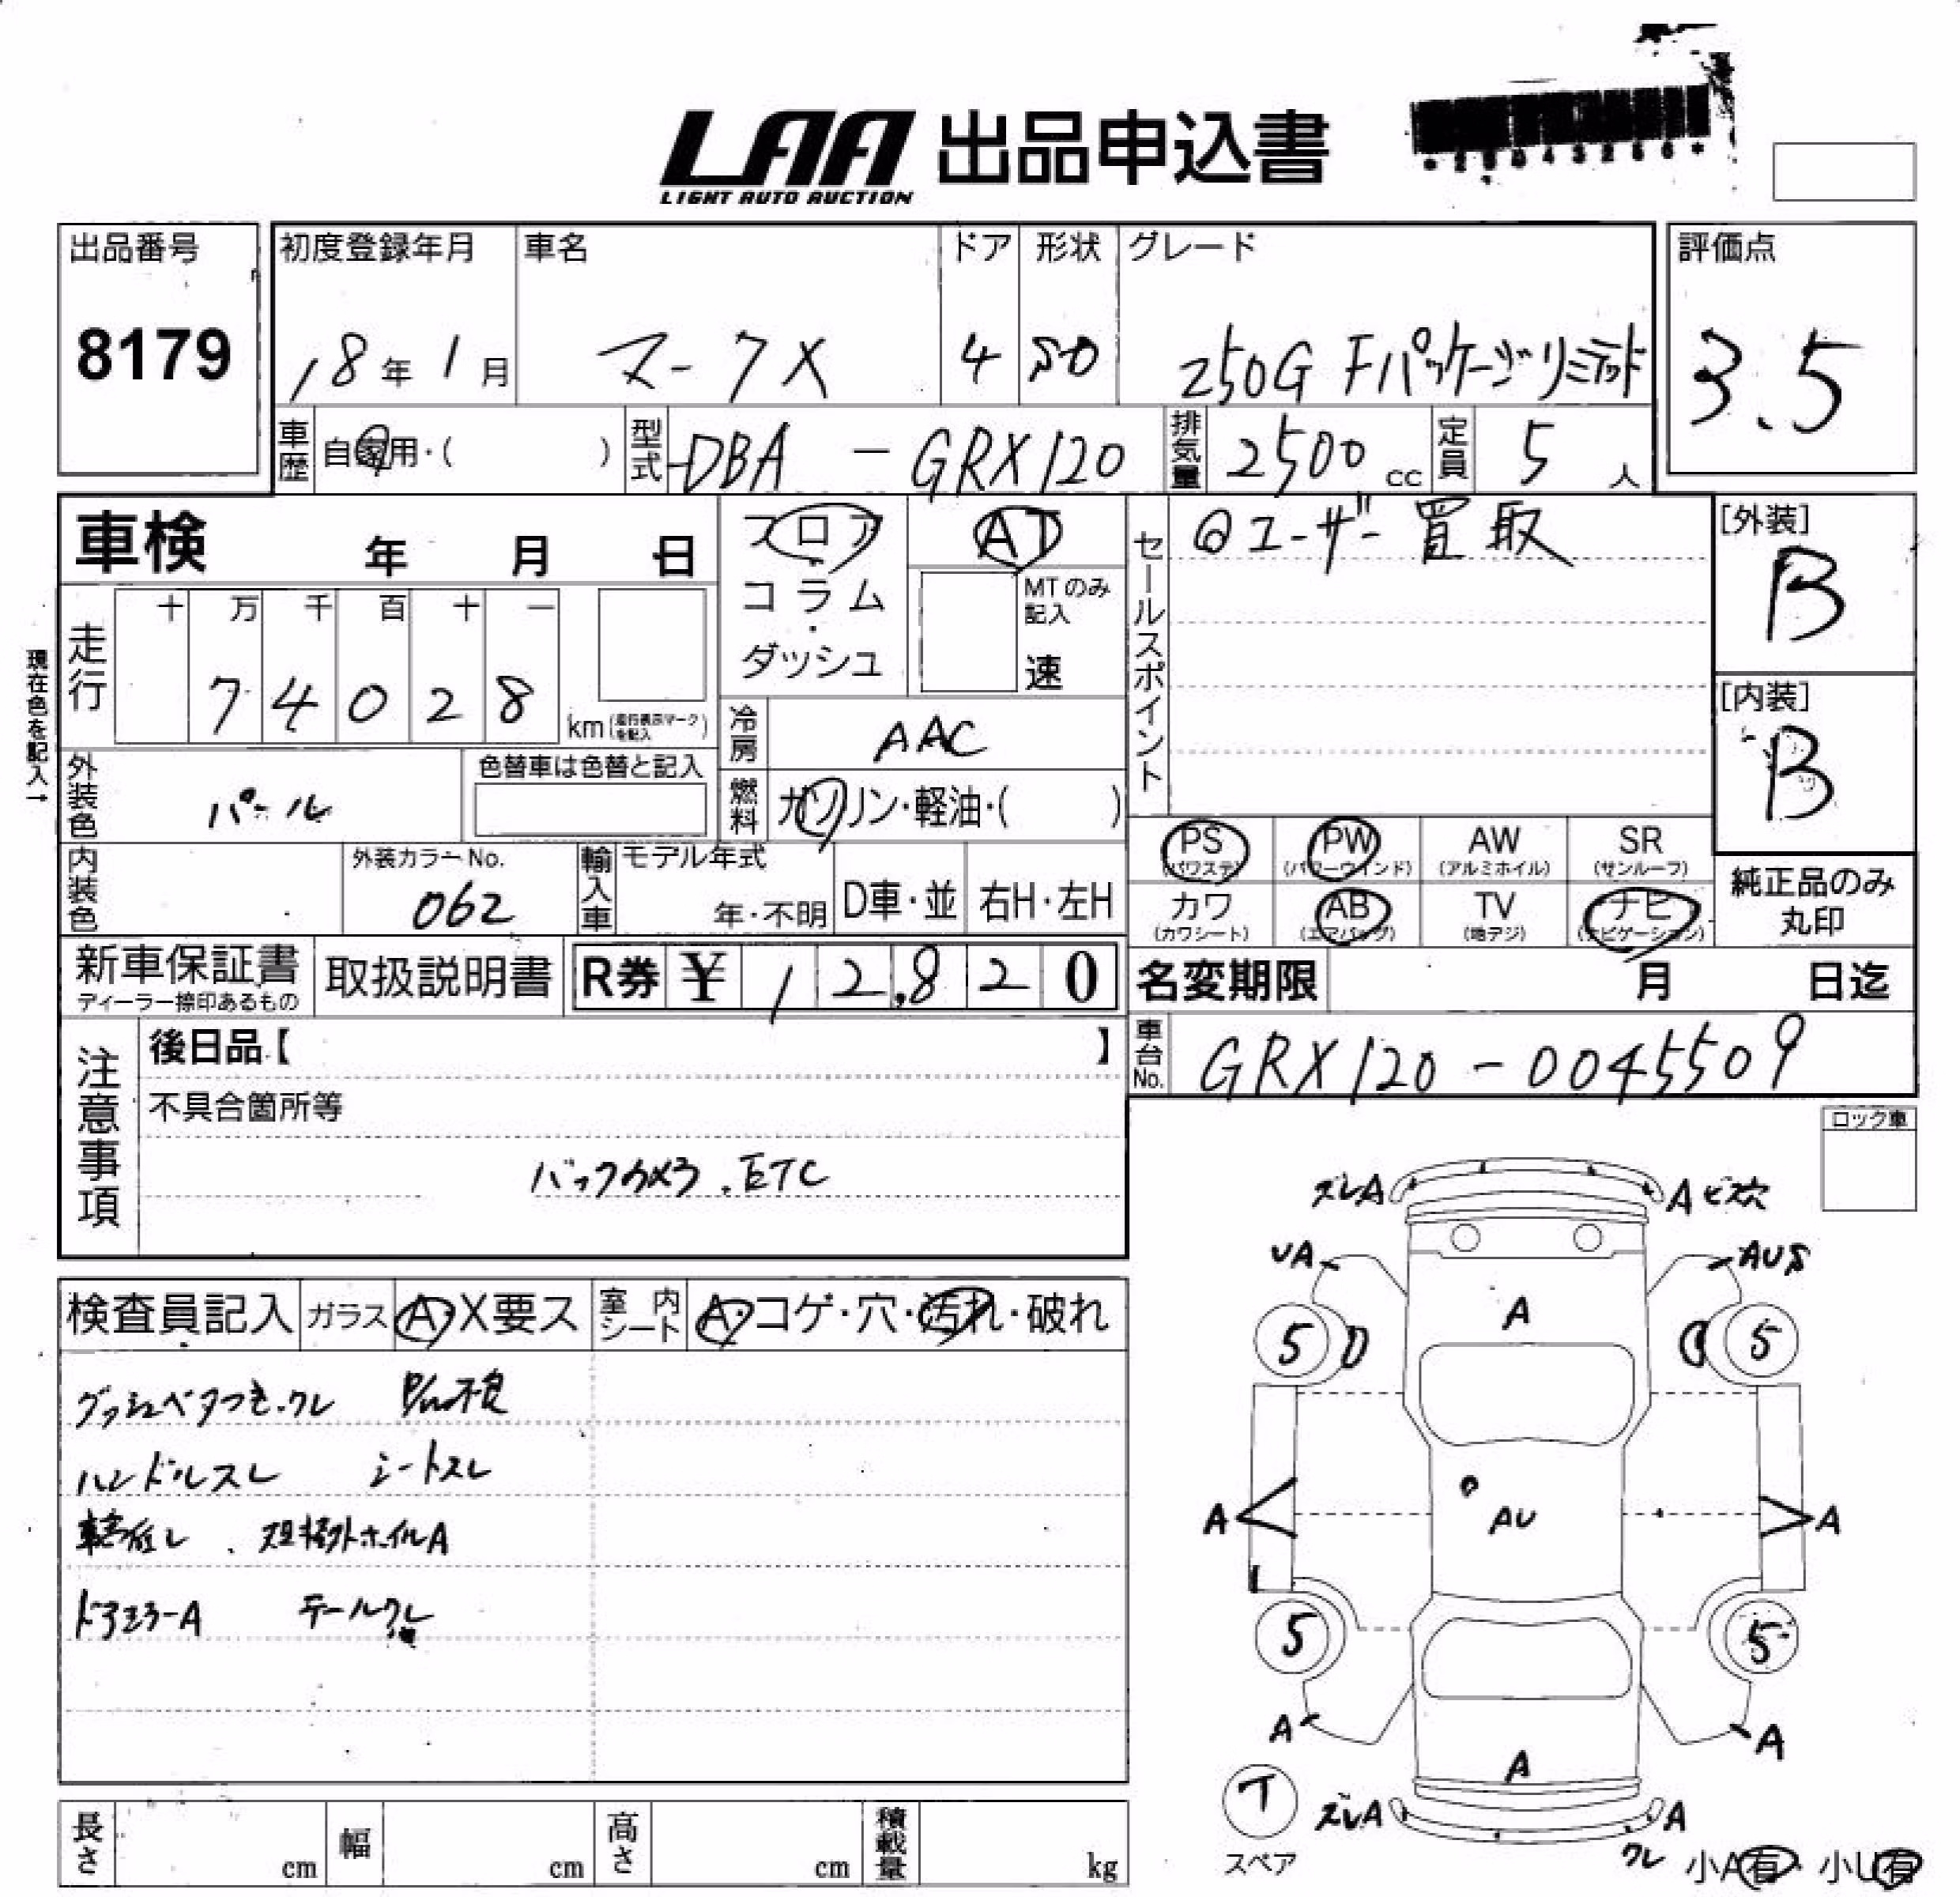 LAA 出品申込書
LIGHT AUTO AUCTION
出品番号 初度登録年月 車名 ドア 形状 グレード 評価点
8179 18年1月 マークX 4 SD 250G Fパッケージリミテッド 3.5
車歴 自家用・( ) 型式 DBA - GRX120 排気量 2500 cc 定員 5 人
車検 年 月 日
フロア・コラム・ダッシュ
AT
MTのみ記入
速
セールスポイント
@ユーザー買取
[外装]
B
[内装]
B
現在色を記入→
走行
十 万 千 百 十 一
7 4 0 2 8
km(走行表示マークを記入)
冷房 AAC
外装色 パール
色替車は色替と記入
燃料 ガソリン・軽油・( )
内装色
外装カラーNo.
062
輸入車 モデル年式
年・不明 D車・並 右H・左H
PS (パワステ) PW (パワーウインド) AW (アルミホイル) SR (サンルーフ)
カワ (カワシート) AB (エアバッグ) TV (地デジ) ナビ (ナビゲーション)
純正品のみ
丸印
新車保証書
ディーラー捺印あるもの
取扱説明書
R券 ¥ 12,820
名変期限 月 日迄
車台No. GRX120-0045509
注意事項
後日品【 】
不具合箇所等
バックカメラ.ETC
ロック車
検査員記入 ガラス A・X要ス 室内シート A・コゲ・穴・汚れ・破れ
ダッシュベタつき.ワレ P/W不良
ハンドルスレ シートスレ
車高低し . 規格外ホイルA
ドアミラーA テールワレ
ズレA A ビス穴
UA AUS
A
5 5
A AU A
5 5
A A
A
T ズレA A
スペア ワレ 小A有・小U有
長さ cm 幅 cm 高さ cm 積載量 kg